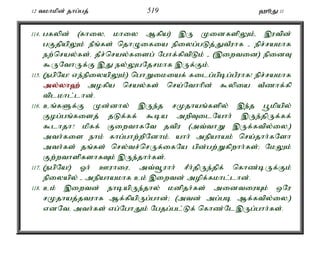 12 வமாமின் தாப்பத் 519 ஹூது 11
114. பகலின் (காலை, மாலை ஆகிய) இரு முனைகளிலும், இரவின்
பகுதியிலும் நீங்கள் தொழுகையை நிலைப்படுத்துவீராக - நிச்சயமாக
நற்செயல்கள், தீச்செயல்களைப் போக்கிவிடும் - (இறைவனை) நினைவு
கூருவோருக்கு இது நல்லுபதேசமாக இருக்கும்.
115. (நபியே! எந்நிலையிலும்) பொறுமையைக் கடைப்பிடிப்பீராக! நிச்சயமாக
அல்லாஹ் அழகிய செயல்கள் செய்வோரின் கூலியை வீணாக்கி
விடமாட்டான்.
116. உங்களுக்கு முன்னால் இருந்த சமுதாயங்களில் இந்த பூமியில்
குழப்பங்களைத் தடுக்கக் கூடிய அறிவுடையோர் இருந்திருக்கக்
கூடாதா? மிகக் குறைவாகவே தவிர (அவ்வாறு இருக்கவில்லை)
அவர்களை நாம் காப்பாற்றினோம். யார் அநியாயம் செய்தார்களோ
அவர்கள் தங்கள் செல்வச்செருக்கையே பின்பற்றுகிறார்கள்; மேலும்
குற்றவாளிகளாகவும் இருந்தார்கள்.
117. (நபியே!) ஓர் ஊராரை, அவ்வூரார் சீர்திருந்திக் கொண்டிருக்கும்
நிலையில் - அநியாயமாக உம் இறைவன் அழிக்கமாட்டான்.
118. உம் இறைவன் நாடியிருந்தால் மனிதர்கள் அனைவரையும் ஒரே
சமுதாயத்தவராக ஆக்கியிருப்பான்; (அவன் அப்படி ஆக்கவில்லை.)
எனவே, அவர்கள் எப்போதும் பேதப்பட்டுக் கொண்டேஇருப்பார்கள்.